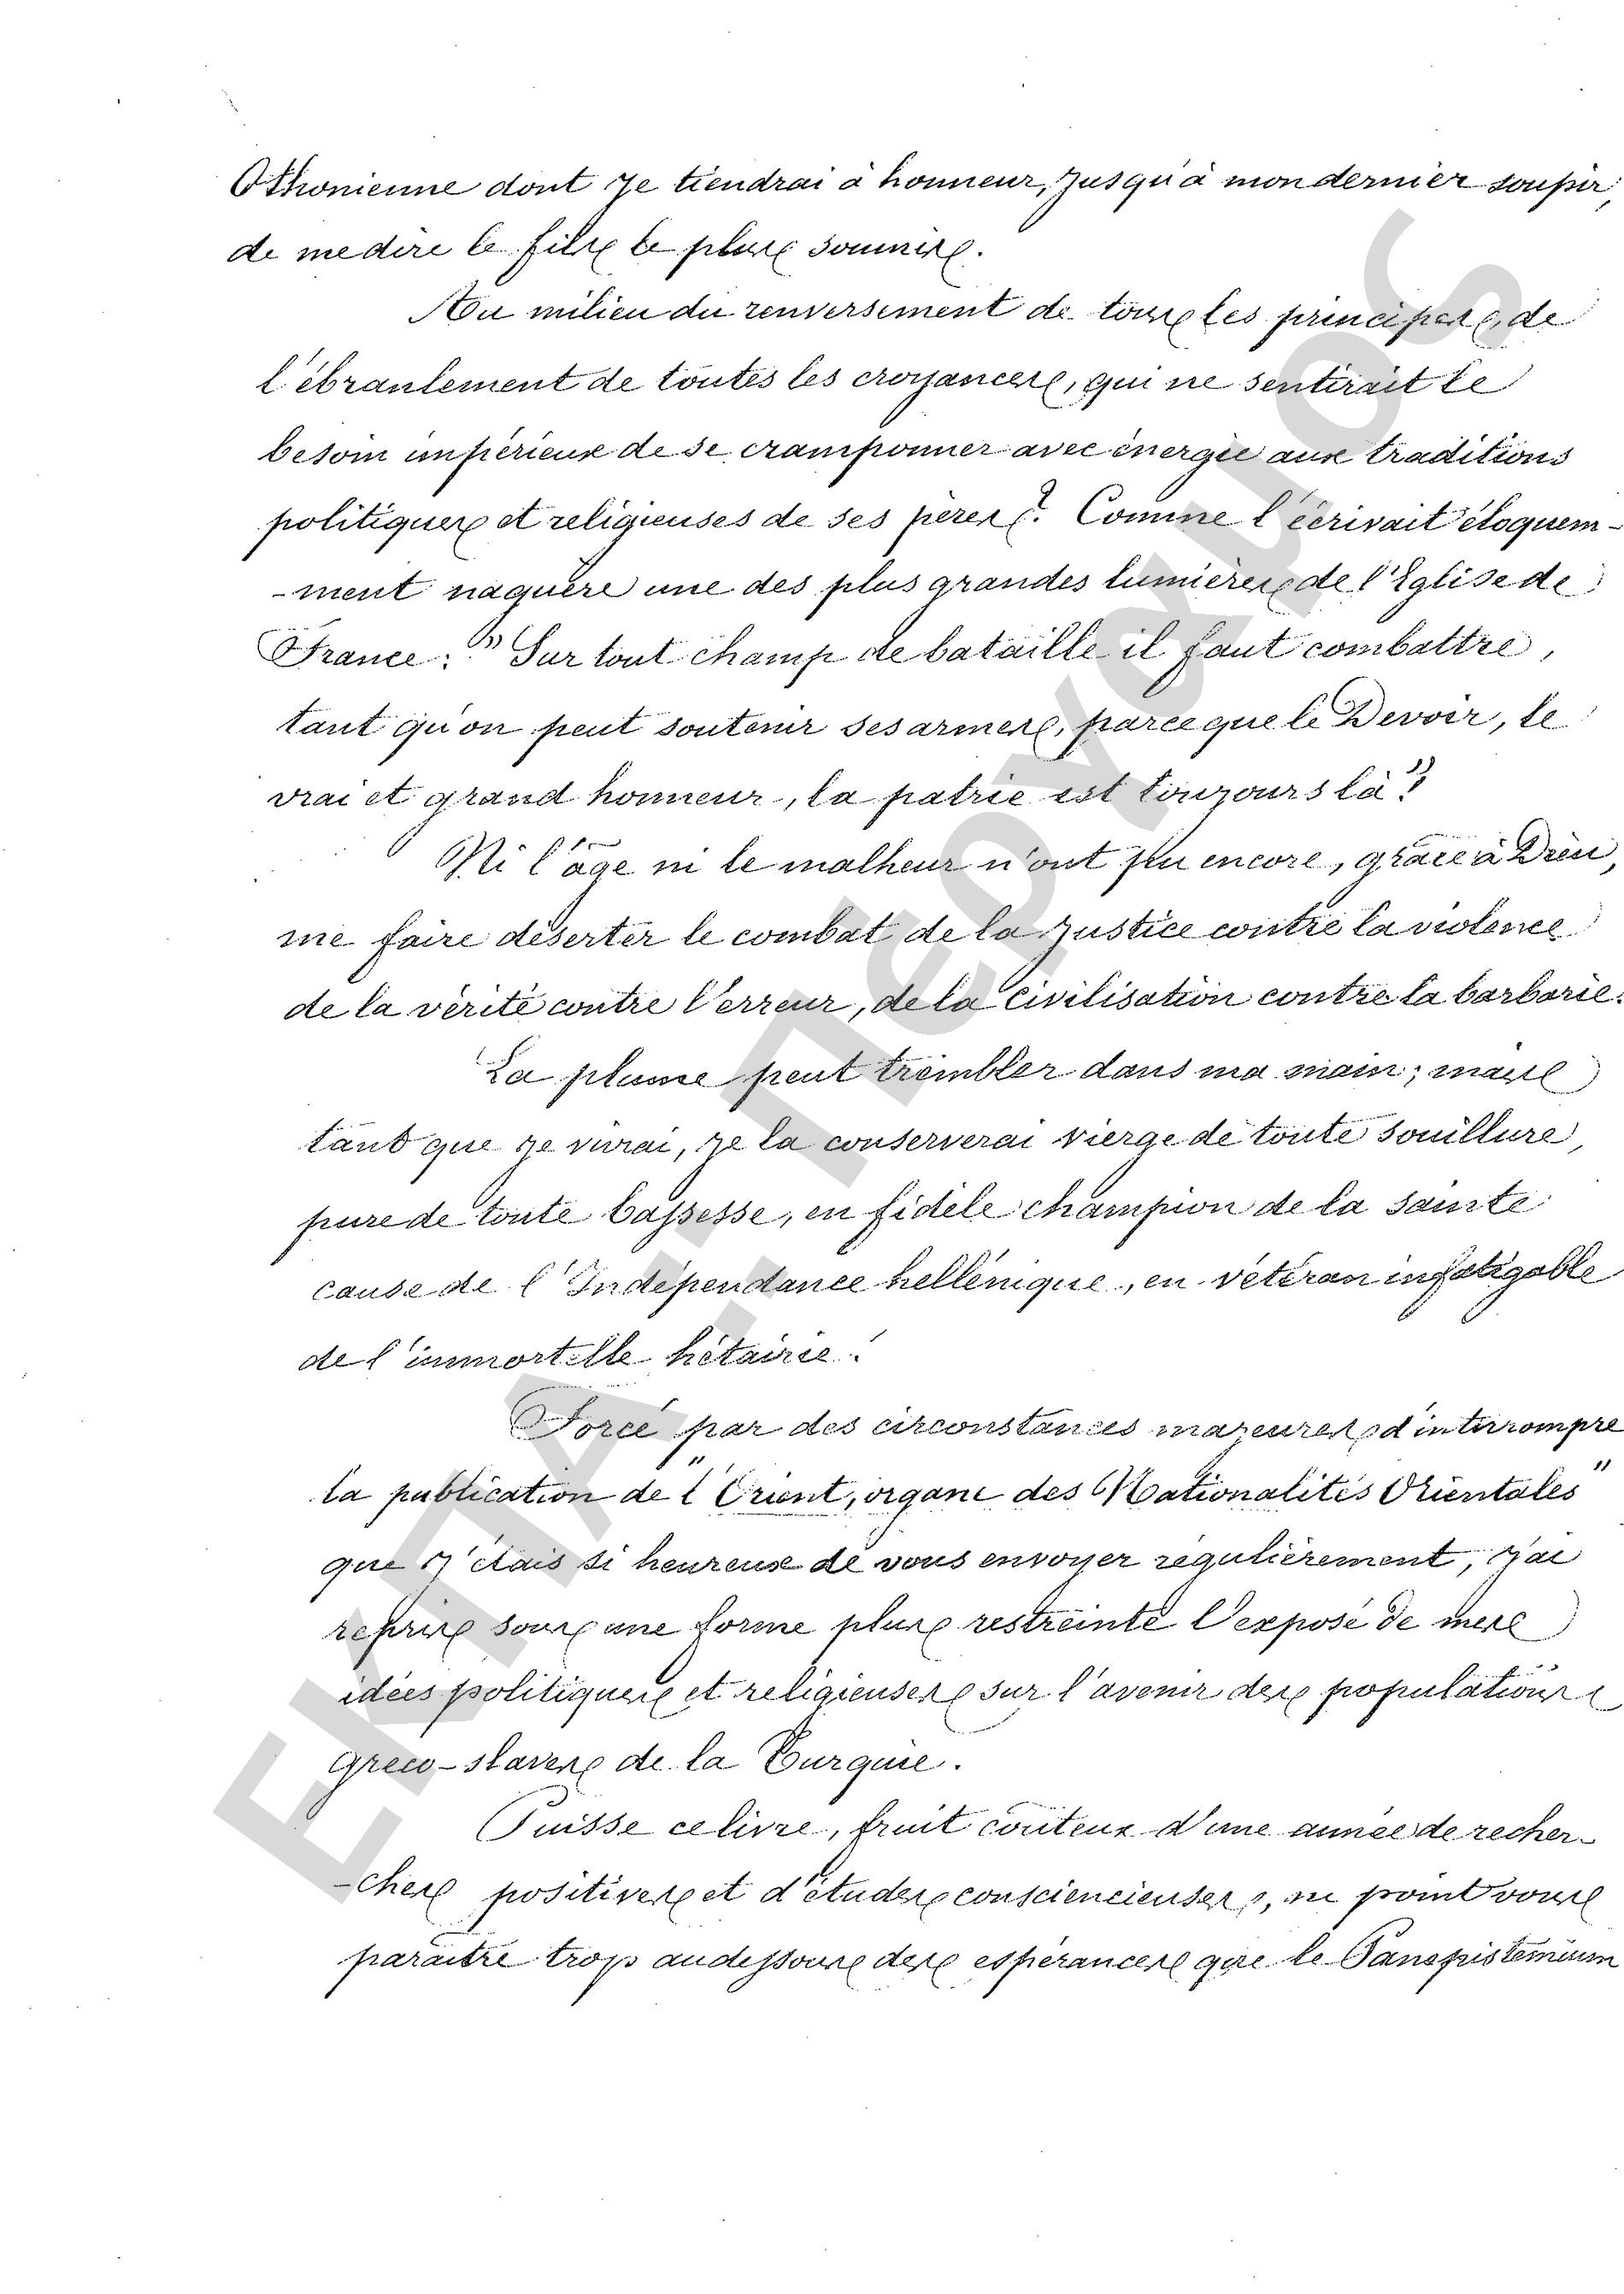 Othonienne dont je tiendrai à honneur, jusqu'à mon dernier soupir,
de me dire le fils le plus soumis.
Au milieu du renversement de tous les principes, de
l'ébranlement de toutes les croyances, qui ne sentirait le
besoin impérieux de se cramponner avec énergie aux traditions
politiques et religieuses de ses pères ? Comme l'écrivait éloquem-
-ment naguère une des plus grandes lumières de l'Eglise de
France : " Sur tout champ de bataille il faut combattre,
tant qu'on peut soutenir ses armes, parce que le Devoir, le
vrai et grand honneur, la patrie est toujours là "
Ni l'âge ni le malheur n'ont pu encore, grâce à Dieu,
me faire déserter le combat de la justice contre la violence
de la vérité contre l'erreur, de la civilisation contre la barbarie.
La plume peut trembler dans ma main; mais
tant que je vivrai, je la conserverai vierge de toute souillure,
pure de toute bassesse, en fidèle champion de la sainte
cause de l'Indépendance hellénique, en vétéran infatigable
de l'immortelle hétairie.
Forcé par des circonstances majeures d'interrompre
la publication de "l'Orient, organe des Nationalités Orientales"
que j'étais si heureux de vous envoyer régulièrement, j'ai
repris sous une forme plus restreinte l'exposé de mes
idées politiques et religieuses sur l'avenir des populations
greco-slaves de la Turquie.
Puisse ce livre, fruit couteux d'une année de recher-
-ches positives et d'études consciencieuses, ne point vous
paraître trop audessous des espérances que le Panépistémium
ΕΚΠΑ - Πέργαμος